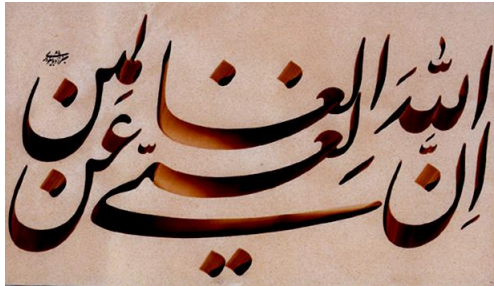 اِنَّ اللهَ لَغنیّ عَنِ العالَمین